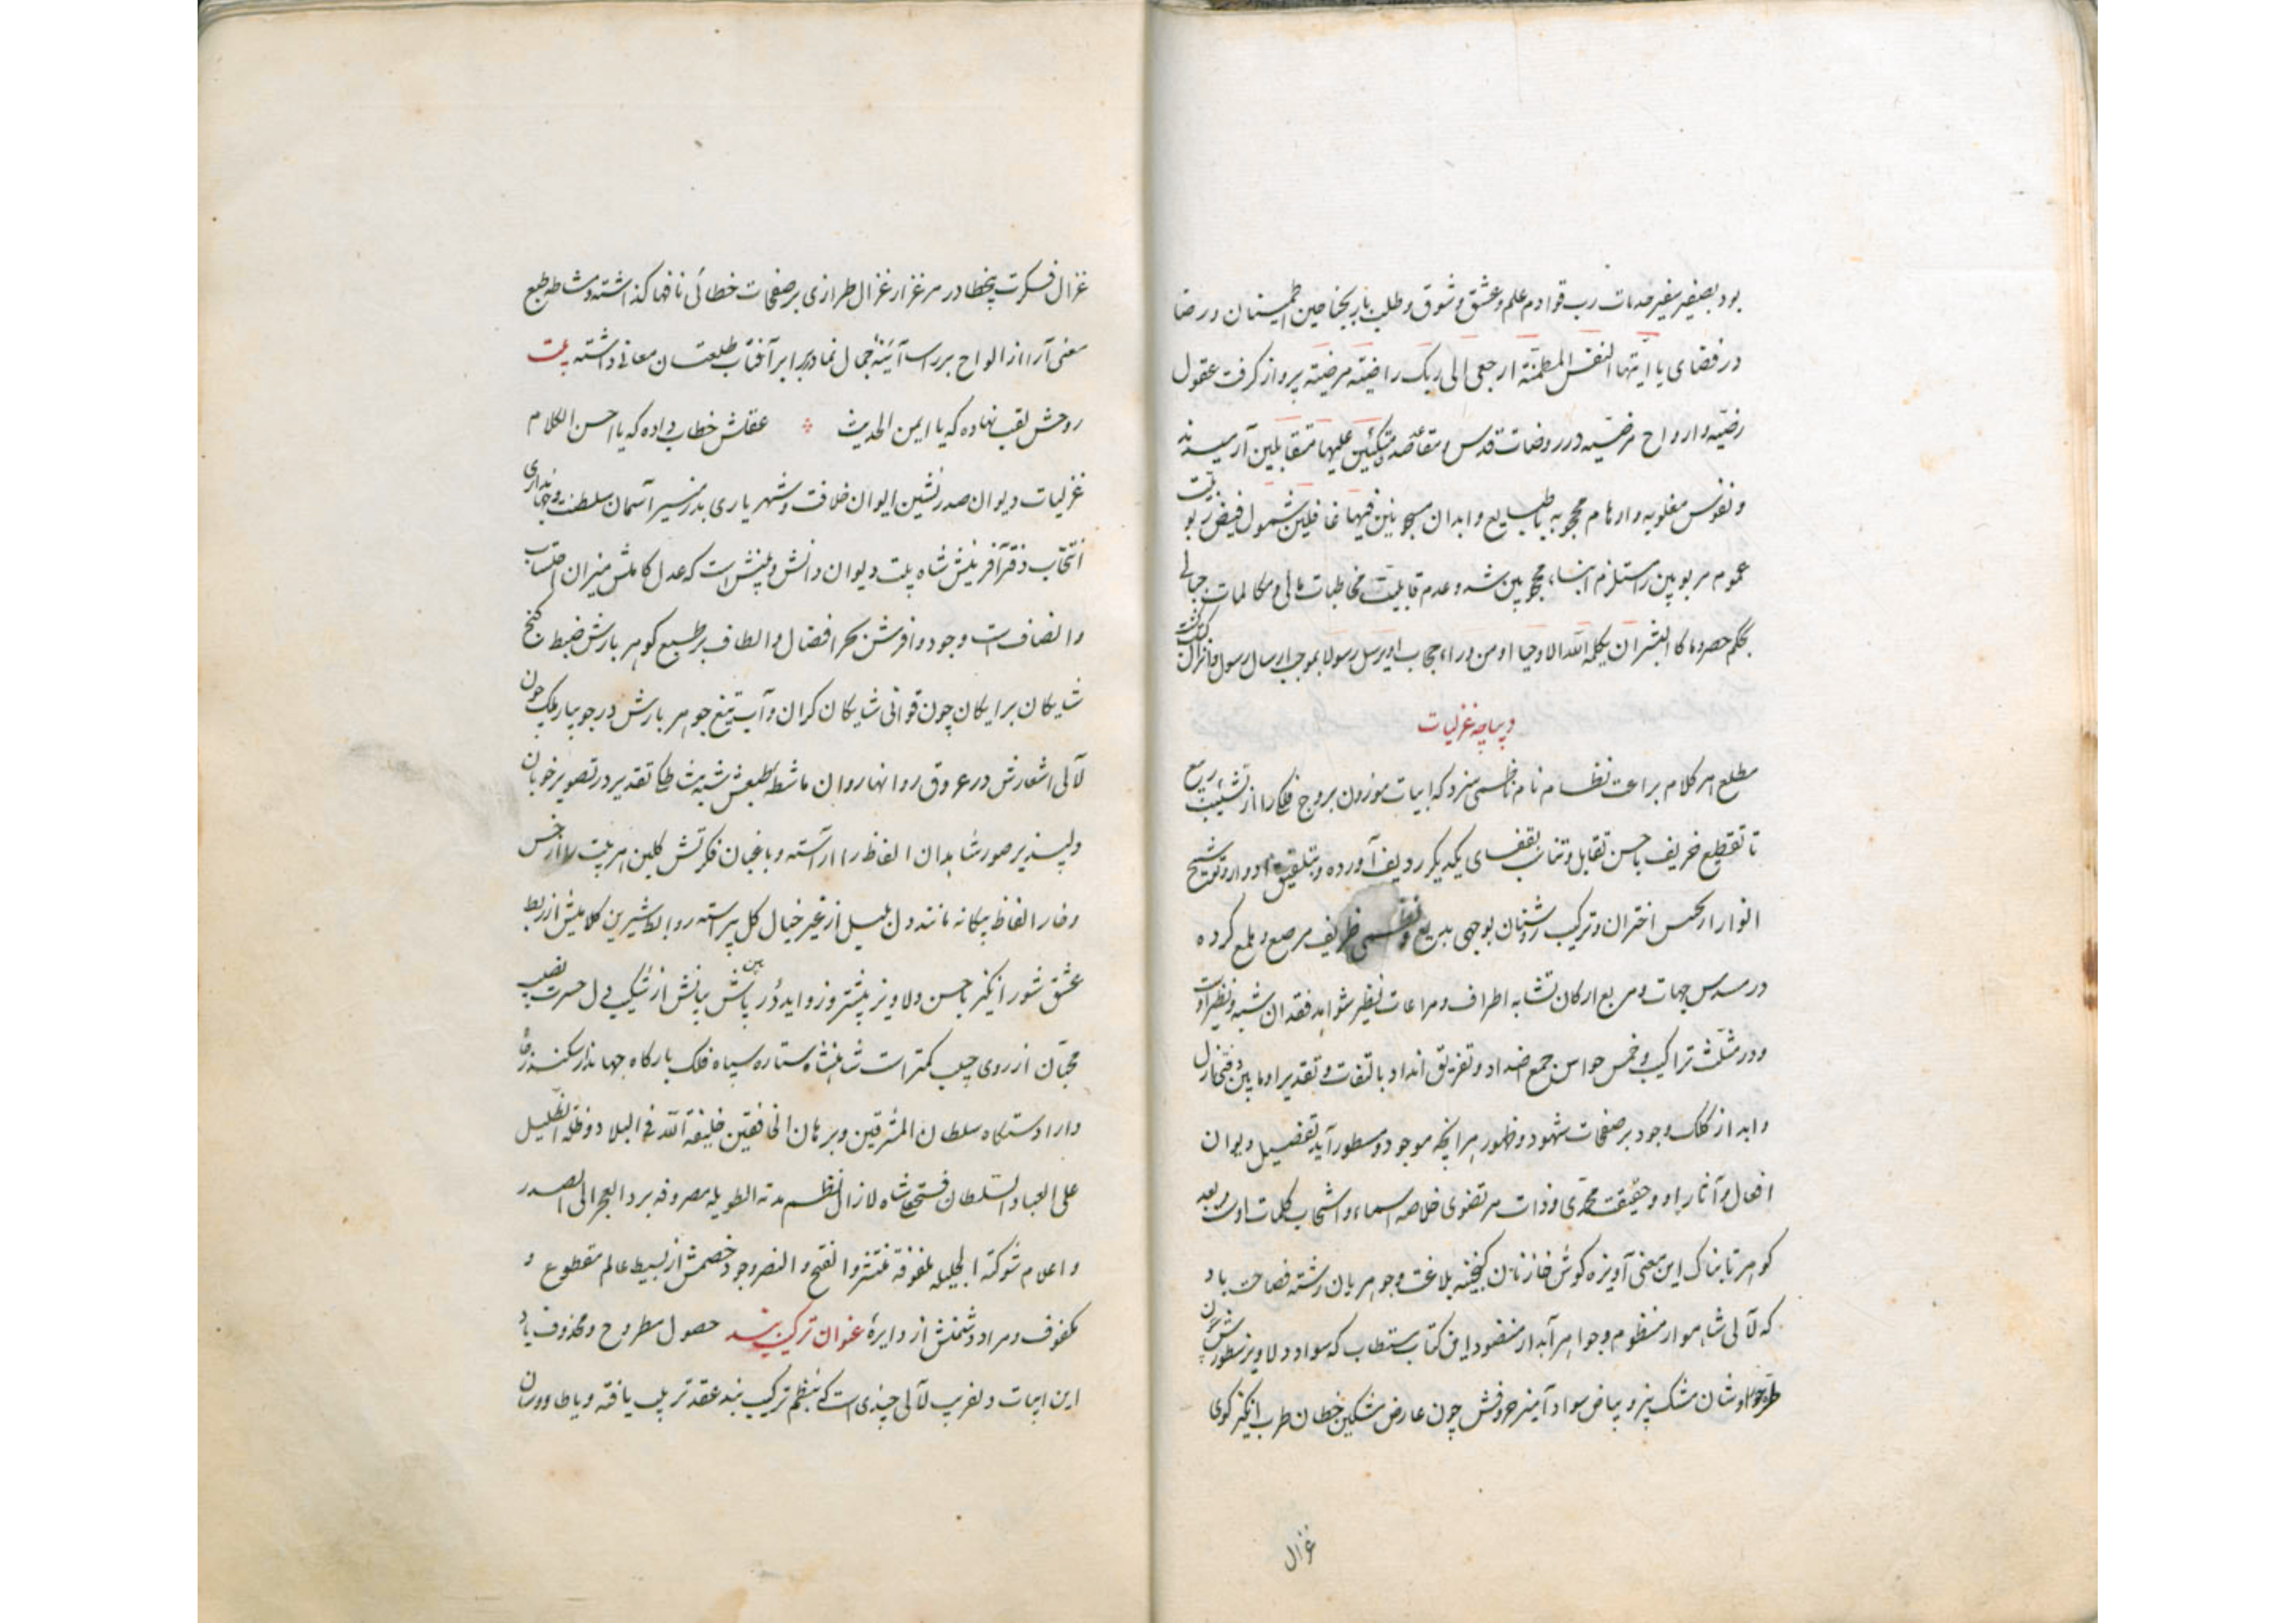 بود بصفیر سفیر صدمات رب قوادم علم و عشق و شوق و طلب باز بجناحین اطمینان و رضا
در فضای یا ایتها النفس المطمئنة ارجعی الی ربک راضیة مرضیة پرواز گرفت عقول
رضیه و ارواح مرضیه در روضات قدس و مقاعد متکئین علیها متقابلین آرمیدند
و نفوس مغلوبه و اوهام محجوبه با طبایع و ابدان مسجونین فیها غافلین شمول فیض ربوبیت
عموم مربوبین را مستلزم انتباه محجوبین شد و عدم قابلیت مخاطبات و مکالمات
بحکم حصر و ما کان لبشر ان یکلمه الله الا وحیا او من وراء حجاب او یرسل رسولا بموجب ارسال رسول و انزال کتب گشت
دیباچه غزلیات
مطلع هر کلام براعت نظام نام ناظمی سزد که ابیات موزون بروج فلک را از تشبیب ربیع
تا تقطیع خریف با حسن تقابل و تناسب بقفای یکدیگر ردیف آورده و بتلفیق ادوار و توشیح
انوار از عکس اختران و ترکیب روشنان بوجهی بدیع و ظریف مرصع و ملمع کرده
در مسدس جهات و مربع ارکان تشابه اطراف و مراعات نظیر شواهد فقدان شبه و نظیر اوست
و در مثلث تراکیب و مخمس حواس جمع اضداد و تفریق انداد بالتفات و تقدیر او ما بین
و ابد از کلک وجود بر صفحات شهود و ظهور هر آنچه موجود و مسطور آید تفصیل دیوان
افعال و آثار او و حقیقت محمدی و ذات مرتضوی خلاصه اسماء و انتخاب کلمات اوست و بعد
گوهر تابناک این معنی آویزه گوش خازنان گنجینه بلاغت و جوهریان رشته فصاحت باد
که لآلی شاهوار منظوم و جواهر آبدار منضود این کتاب مستطاب که سواد دلاویز سطورش چون
طره حوراوشان مشک بیز و بیاض سواد آمیز حروفش چون عارض مشکین خطان طرب انگیز گوی
غزال
غزال فکرت بخطا در مرغزار غزال طرازی بر صفحات خطائی نافها گذاشته و مشاطه طبع
معنی آرا از الواح بر راست آئینه جمال نما در برابر آفتاب طلعتان معانی داشته بیت
روحش لقب نهاده که یا ایمن الحدیث ؞ عقلش خطاب داده که یا احسن الکلام
غزلیات دیوان صدر نشین ایوان خلافت و شهریاری بدر منیر آسمان سلطنت و جهانداری
انتخاب دفتر آفرینش شاه بیت دیوان دانش و بینش است که عدل کاملش میزان احتساب
و انصاف است و جود وافرش بحر افضال و الطاف بر طبع گوهر بارش ضبط گنج
شایگان برایگان چون قوافی شایگان گران و آب تیغ جوهر بارش در جویبار ملک چون
لآلی اشعارش در عروق روانها روان ماشطه طبعش شیت خطا تقدیر در تصویر خوبان
دلپذیر صور شاهدان الفاظ را آراسته و باغبان فکرتش گلبن هر بیت را از خس
و خار الفاظ بیگانه مانند دل بلبل از غیر خیال گل پیراسته روابط شیرین کلامش از ربط
عشق شور انگیز با حسن دلاویز بیشتر و زواید در پاش بیانش از شکیب دل حسرت نصیب
محبان از روی حبیب کمتر است شاهنشاه ستاره سپاه فلک بارگاه جهاندار سکندر
دارا دستگاه سلطان المشرقین و برهان الخافقین خلیفة الله فی البلاد و ظله الظلیل
علی العباد السلطان فتحعلی شاه لازال نظم مدته الطویله مصروفه برد العجز الی الصدر
و اعلام شوکته الجلیله ملفوفة بنشر و الفتح و النصر وجود خصمش از بسیط عالم مقطوع و
مکفوف و مراد دشمنش از دایره عنوان ترکیب بند حصول مطروح و محذوف باد
این ابیات دلفریب لآلی چندی است که بنظم ترکیب بند عقد ترتیب یافته و یا طاووسان